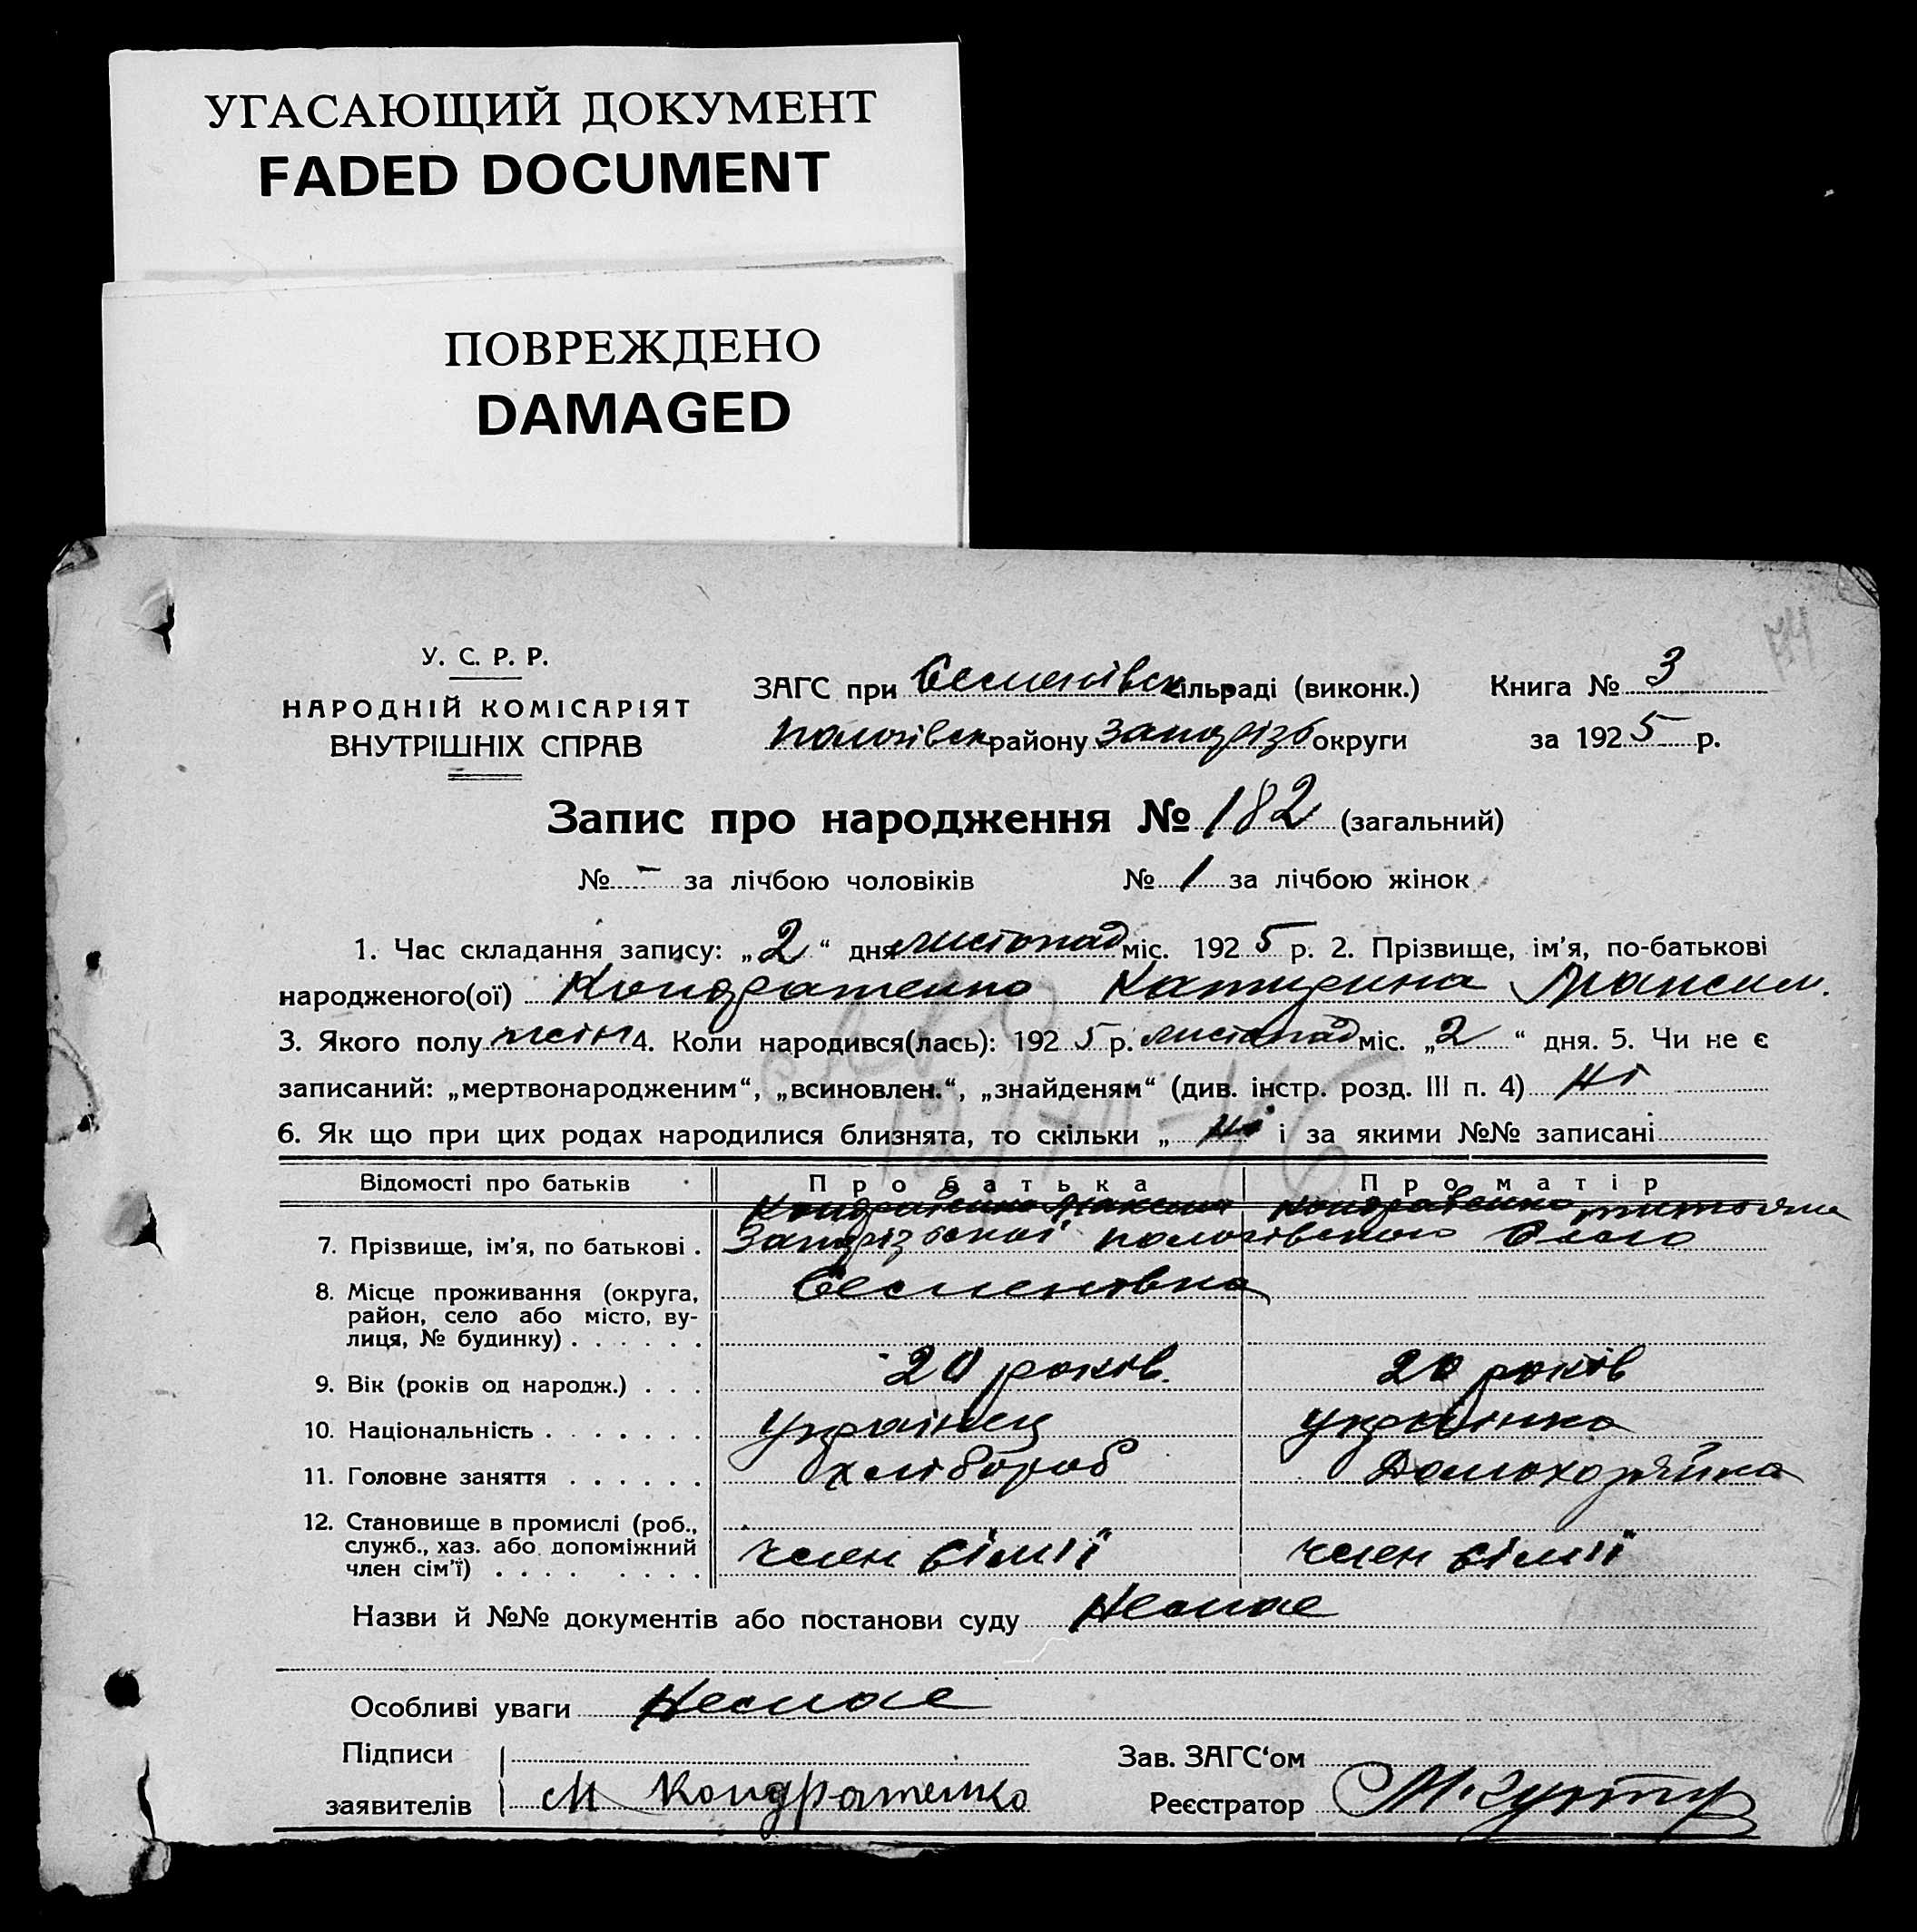 УГАСАЮЩИЙ ДОКУМЕНТ
FADED DOCUMENT
ПОВРЕЖДЕНО
DAMAGED
74
У. С. Р. Р.
НАРОДНІЙ КОМІСАРІЯТ
ВНУТРІШНІХ СПРАВ
ЗАГС при Семенівск сільраді (виконк.) Книга № 3
пологівск району Запорізь округи за 1925 р.
Запис про народження № 182 (загальний)
№ - за лічбою чоловіків № 1 за лічбою жінок
1. Час складання запису: „2“ дня листопад міс. 1925 р. 2. Прізвище, ім’я, по-батькові
народженого(ої) Кондратенко Катирина Максим.
3. Якого полу жін 4. Коли народився(лась): 1925 р. листопад міс. „2“ дня. 5. Чи не є
записаний: „мертвонародженим“, „всиновлен.“, „знайденям“ (див. інстр. розд. III п. 4) ні
6. Як що при цих родах народилися близнята, то скільки „ ні і за якими №№ записані
Відомості про батьків Про батька Про матір
Кондратенко Максим Кондратенко
7. Прізвище, ім’я, по батькові . Запорізької пологівского Село
8. Місце проживання (округа, Семенівка
район, село або місто, ву-
лиця, № будинку) . . . . . .
9. Вік (років од народж.) . . . 20 років. 20 років
10. Національність . . . . . . . українец українка
11. Головне заняття . . . . . . хлібороб Домохозяйка
12. Становище в промислі (роб.,
служб., хаз. або допоміжний член сімії член сімії
член сім’ї) . . . . . . . .
Назви й №№ документів або постанови суду Немае
Особливі уваги Немае
Підписи Зав. ЗАГС‘ом
заявителів М Кондратенко Реєстратор